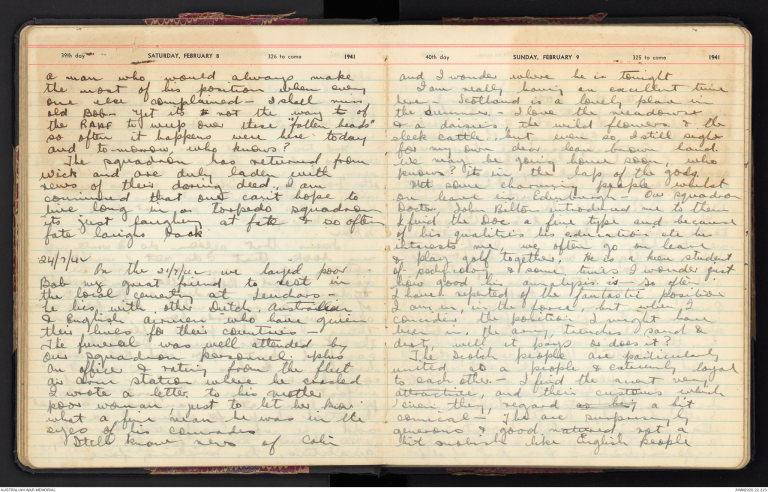 39th day SATURDAY, FEBRUARY 8 326 to come 1941
a man who would always make
the most of his position when every
one else complained – I shall miss
old Bob – Yet its not the way of
the RAAF to weep over these "fallen heads"
so often it happens were here today
and to-morrow, who knows?
The squadron has returned from
Wick and are duly laden with
news of their daring deed. I am
convinced that one can't hope to
live long in a torpedo squadron
its just laughing at fate & so often
fate laughs back
24/7/42
On the 21/7/42 we layed poor
Bob my great friend to rest in
the local cemetry at Leuchars –
he lies with other Dutch, Australian
& English airmen who have given
their lives for their countries –
The funeral was well attended by
our squadron personnel plus
an officer & rating from the fleet
air arm station where he crashed
I wrote a letter to his mother
poor woman, just to let her know
what a fine man he was in the
eyes of his comrades
Still know news of Col
40th day SUNDAY, FEBRUARY 9 325 to come 1941
and I wonder where he is tonight
I am really having an excellent time
here – Scotland is a lovely place in
the summer – I love the meadows
& daisies, the wild flowers & the
sleek cattle, but even so I still
for my own dear lean brown land.
We may be going home soon, who
knows? its in the lap of the gods
Met some charming people whilst
on leave in Edinburgh – Our squadron
Doctor John Bilton introduced me to them
I find the Doc. a fine type and because
of his qualities his education etc he
interests me, we often go on leave
& play golf together. He is a keen student
of & some times I wonder just
how good his analysis is – So often
I have repeated of the fantastic position
I am in, in the forces, but when I
consider the position I might have
been in, the army, trenches sand &
dust, well it pays or does it?
The Scotch people are particularly
united as a people & extremely loyal
to each other – I find the accent very
attractive, and their customs which
even they, regard as being a bit
comical – They are surprisingly
generous & good natured, not a
bit snobbish like English people
AUSTRALIAN WAR MEMORIAL
AWM2020.22.225